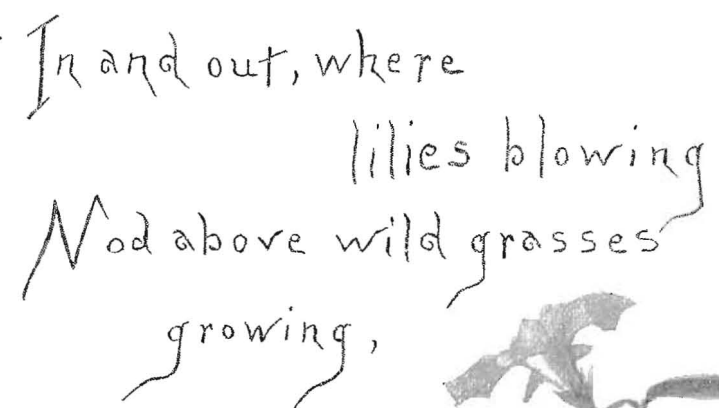 In and out, where
lilies blowing
Nod above wild grasses
growing,